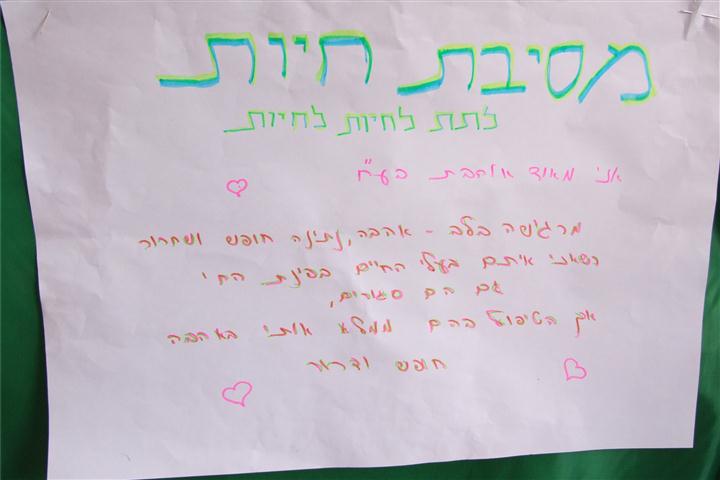 מסיבת חיות
לתת לחיות לחיות
אני מאוד אוהבת בע"ח
מרגישה בלב - אהבה, נתינה חופש ושחרור
כשאני איתם בעלי החיים בפינת החי
גם הם סגורים,
אך הטיפול בהם ממלא אותי באהבה
חופש ודרור